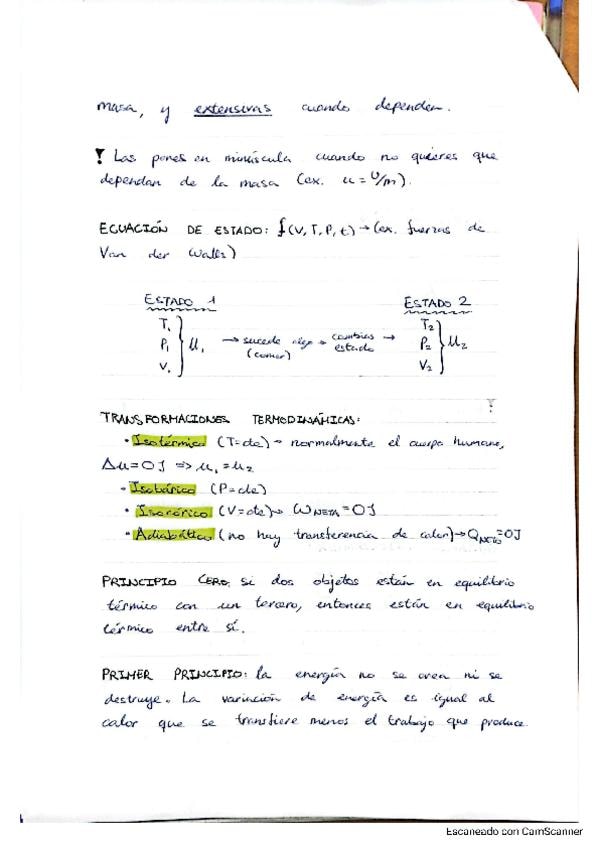 masa, y extensivas cuando dependen.
! Las pones en minúscula cuando no quieres que
dependan de la masa (ex. u = U/m).
ECUACIÓN DE ESTADO: f(V, T, P, t) → (ex. fuerzas de
Van der Walls)
ESTADO 1 ESTADO 2
T₁ T₂
P₁ } U₁ → sucede algo → cambias estado → P₂ } U₂
(comer)
V₁ V₂
TRANSFORMACIONES TERMODINÁMICAS:
• Isotérmico (T=cte) → normalmente el cuerpo humano,
Δu=0J => u₁=u₂
• Isobárico (P=cte)
• Isocórico (V=cte) → W NETA = 0J
• Adiabático (no hay transferencia de calor) → Q NETO = 0J
PRINCIPIO CERO: si dos objetos están en equilibrio
térmico con un tercero, entonces están en equilibrio
térmico entre sí.
PRIMER PRINCIPIO: la energía no se crea ni se
destruye. La variación de energía es igual al
calor que se transfiere menos el trabajo que produce
Escaneado con CamScanner